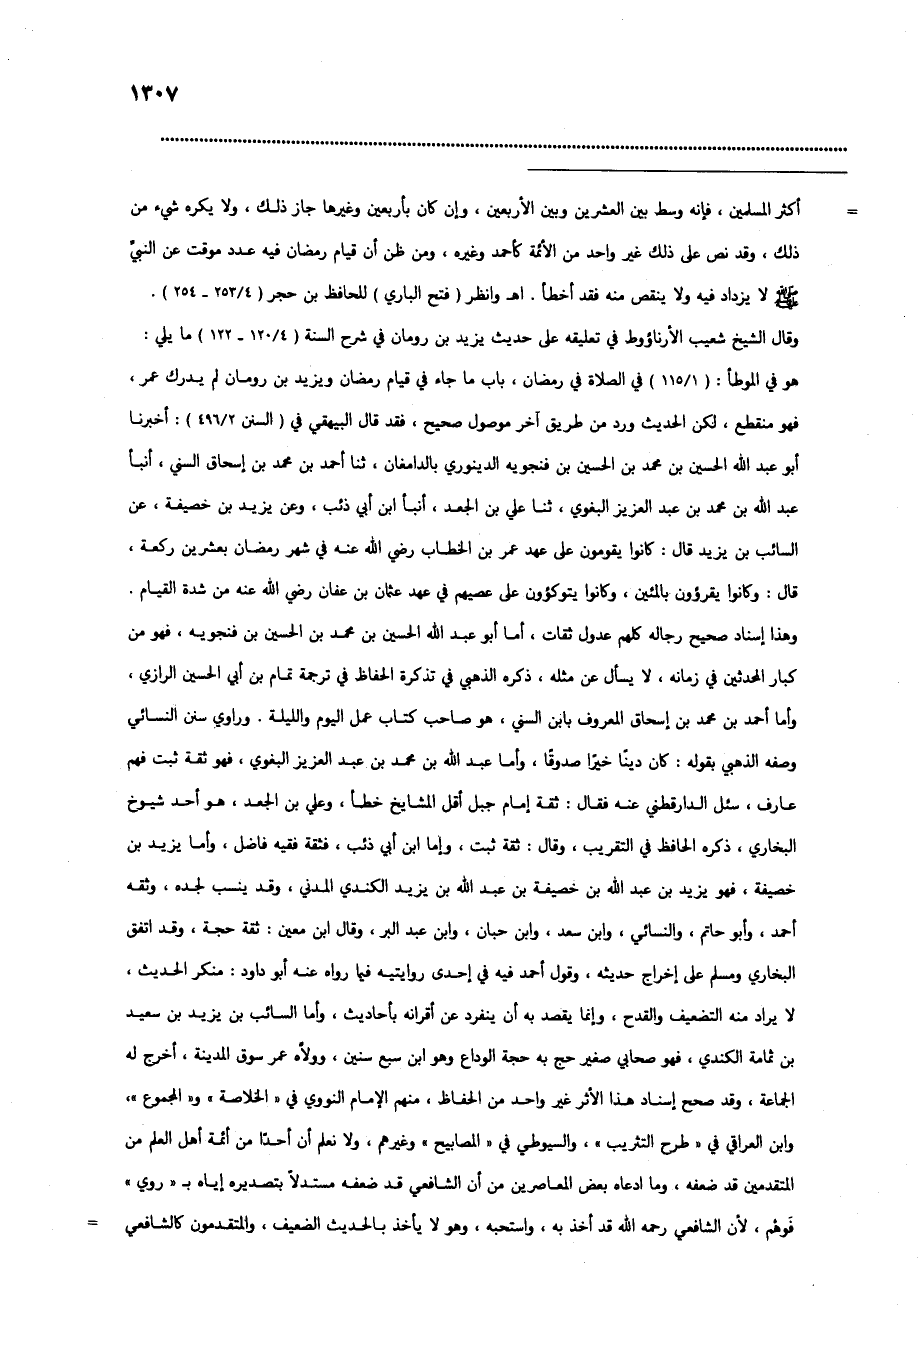 ١٣٠٧
= أكثر المسلمين ، فإنه وسط بين العشرين وبين الأربعين ، وإن كان بأربعين وغيرها جاز ذلك ، ولا يكره شيء من
ذلك ، وقد نص على ذلك غير واحد من الأئمة كأحمد وغيره ، ومن ظن أن قيام رمضان فيه عدد موقت عن النبيِّ
ﷺ لا يزداد فيه ولا ينقص منه فقد أخطأ . اهـ وانظر ( فتح الباري ) للحافظ بن حجر ( ٢٥٣/٤ ـ ٢٥٤ ) .
وقال الشيخ شعيب الأرناؤوط في تعليقه على حديث يزيد بن رومان في شرح السنة ( ١٢٠/٤ ـ ١٢٢ ) ما يلي :
هو في الموطأ : ( ١١٥/١ ) في الصلاة في رمضان ، باب ما جاء في قيام رمضان ويزيد بن رومان لم يدرك عمر ،
فهو منقطع ، لكن الحديث ورد من طريق آخر موصول صحيح ، فقد قال البيهقي في ( السنن ٤٩٦/٢ ) : أخبرنا
أبو عبد الله الحسين بن محمد بن الحسين بن فنجويه الدينوري بالدامغان ، ثنا أحمد بن محمد بن إسحاق السني ، أنبأ
عبد الله بن محمد بن عبد العزيز البغوي ، ثنا علي بن الجعد ، أنبأ ابن أبي ذئب ، وعن يزيد بن خصيفة ، عن
السائب بن يزيد قال : كانوا يقومون على عهد عمر بن الخطاب رضي الله عنه في شهر رمضان بعشرين ركعة ،
قال : وكانوا يقرؤون بالمئين ، وكانوا يتوكؤون على عصيهم في عهد عثمان بن عفان رضي الله عنه من شدة القيام .
وهذا إسناد صحيح رجاله كلهم عدول ثقات ، أما أبو عبد الله الحسين بن محمد بن الحسين بن فنجويه ، فهو من
كبار المحدثين في زمانه ، لا يسأل عن مثله ، ذكره الذهبي في تذكرة الحفاظ في ترجمة تمام بن أبي الحسين الرازي ،
وأما أحمد بن محمد بن إسحاق المعروف بابن السني ، هو صاحب كتاب عمل اليوم والليلة . وراوي سنن النسائي
وصفه الذهبي بقوله : كان دينًا خيرًا صدوقًا ، وأما عبد الله بن محمد بن عبد العزيز البغوي ، فهو ثقة ثبت فهم
عارف ، سئل الدارقطني عنه فقال : ثقة إمام جبل أقل المشايخ خطأ ، وعلي بن الجعد ، هو أحد شيوخ
البخاري ، ذكره الحافظ في التقريب ، وقال : ثقة ثبت ، وإما ابن أبي ذئب ، فثقة فقيه فاضل ، وأما يزيد بن
خصيفة ، فهو يزيد بن عبد الله بن خصيفة بن عبد الله بن يزيد الكندي المدني ، وقد ينسب لجده ، وثقه
أحمد ، وأبو حاتم ، والنسائي ، وابن سعد ، وابن حبان ، وابن عبد البر ، وقال ابن معين : ثقة حجة ، وقد اتفق
البخاري ومسلم على إخراج حديثه ، وقول أحمد فيه في إحدى روايتيه فيما رواه عنه أبو داود : منكر الحديث ،
لا يراد منه التضعيف والقدح ، وإنما يقصد به أن ينفرد عن أقرانه بأحاديث ، وأما السائب بن يزيد بن سعيد
بن ثمامة الكندي ، فهو صحابي صغير حج به حجة الوداع وهو ابن سبع سنين ، وولاه عمر سوق المدينة ، أخرج له
الجماعة ، وقد صحح إسناد هذا الأثر غير واحد من الحفاظ ، منهم الإمام النووي في « الخلاصة » و« المجموع »،
وابن العراقي في « طرح التثريب » ، والسيوطي في « المصابيح » وغيرهم ، ولا نعلم أن أحدًا من أئمة أهل العلم من
المتقدمين قد ضعفه ، وما ادعاه بعض المعاصرين من أن الشافعي قد ضعفه مستدلاً بتصديره إياه بـ « روي »
فَوهْم ، لأن الشافعي رحمه الله قد أخذ به ، واستحبه ، وهو لا يأخذ بالحديث الضعيف ، والمتقدمون كالشافعي =